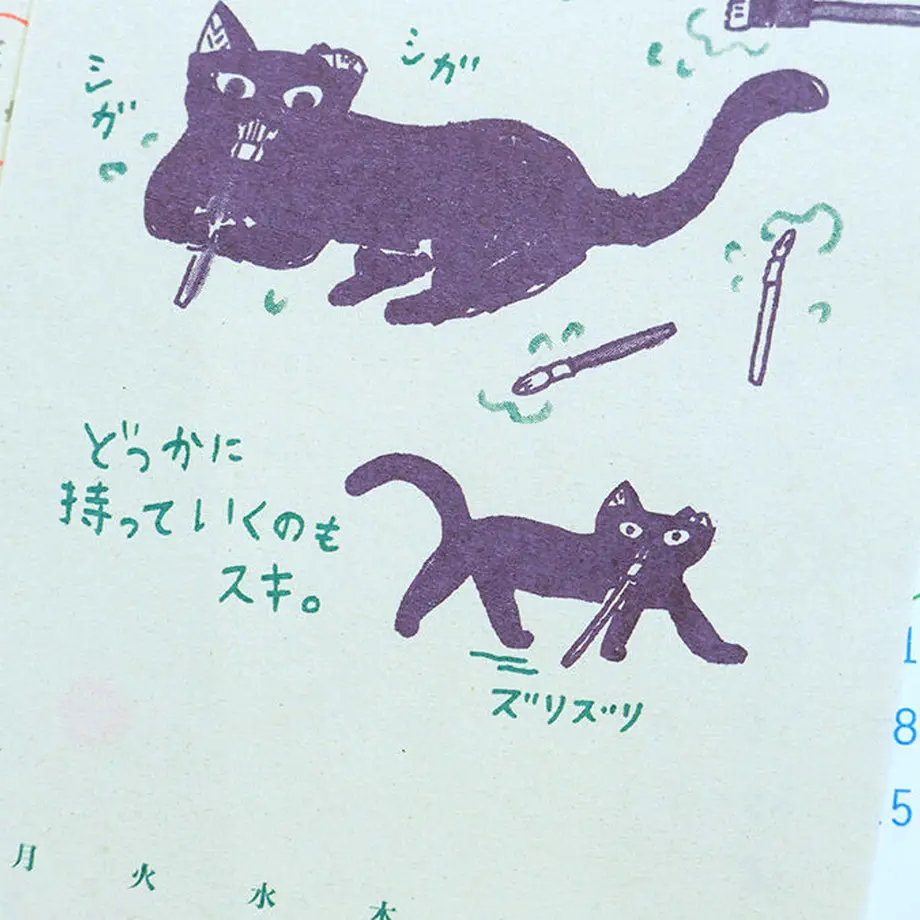 シガ
シガ
どっかに
持っていくのも
スキ。
ズリズリ
月 火 水 木
1
8
5